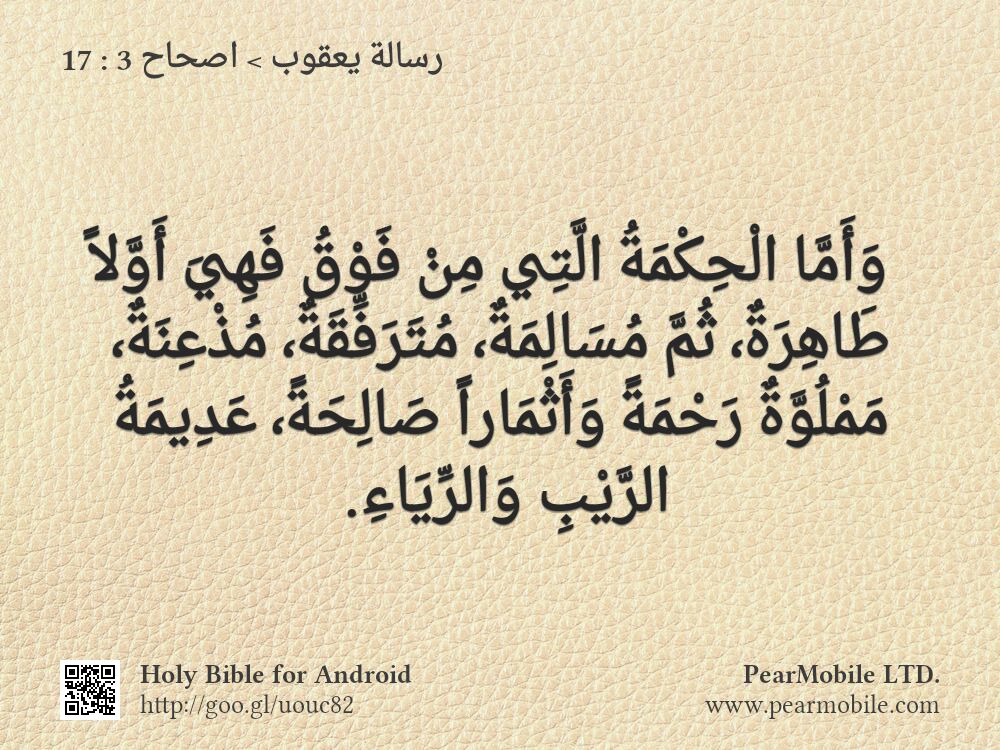 رسالة يعقوب > اصحاح 3 : 17
وَأَمَّا الْحِكْمَةُ الَّتِي مِنْ فَوْقُ فَهِيَ أَوَّلاً
طَاهِرَةٌ، ثُمَّ مُسَالِمَةٌ، مُتَرَفِّقَةٌ، مُذْعِنَةٌ،
مَمْلُوَّةٌ رَحْمَةً وَأَثْمَاراً صَالِحَةً، عَدِيمَةُ
الرَّيْبِ وَالرِّيَاءِ.
Holy Bible for Android
http://goo.gl/uouc82
PearMobile LTD.
www.pearmobile.com